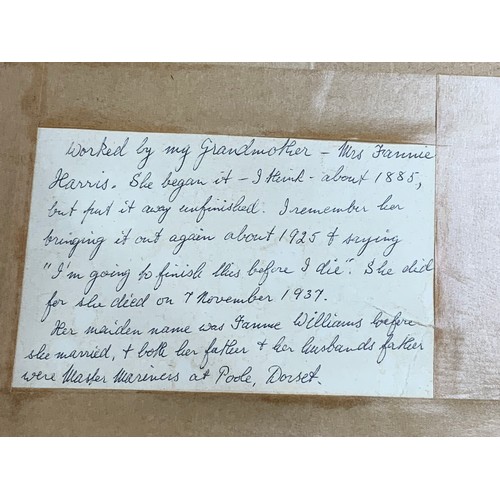 Worked by my Grandmother – Mrs Fannie
Harris. She began it – I think – about 1885,
but put it away unfinished. I remember her
bringing it out again about 1925 & saying
"I'm going to finish this before I die". She did
for she died on 7 November 1937.
Her maiden name was Fannie Williams before
she married, & both her father & her husbands father
were Master Mariners at Poole, Dorset.